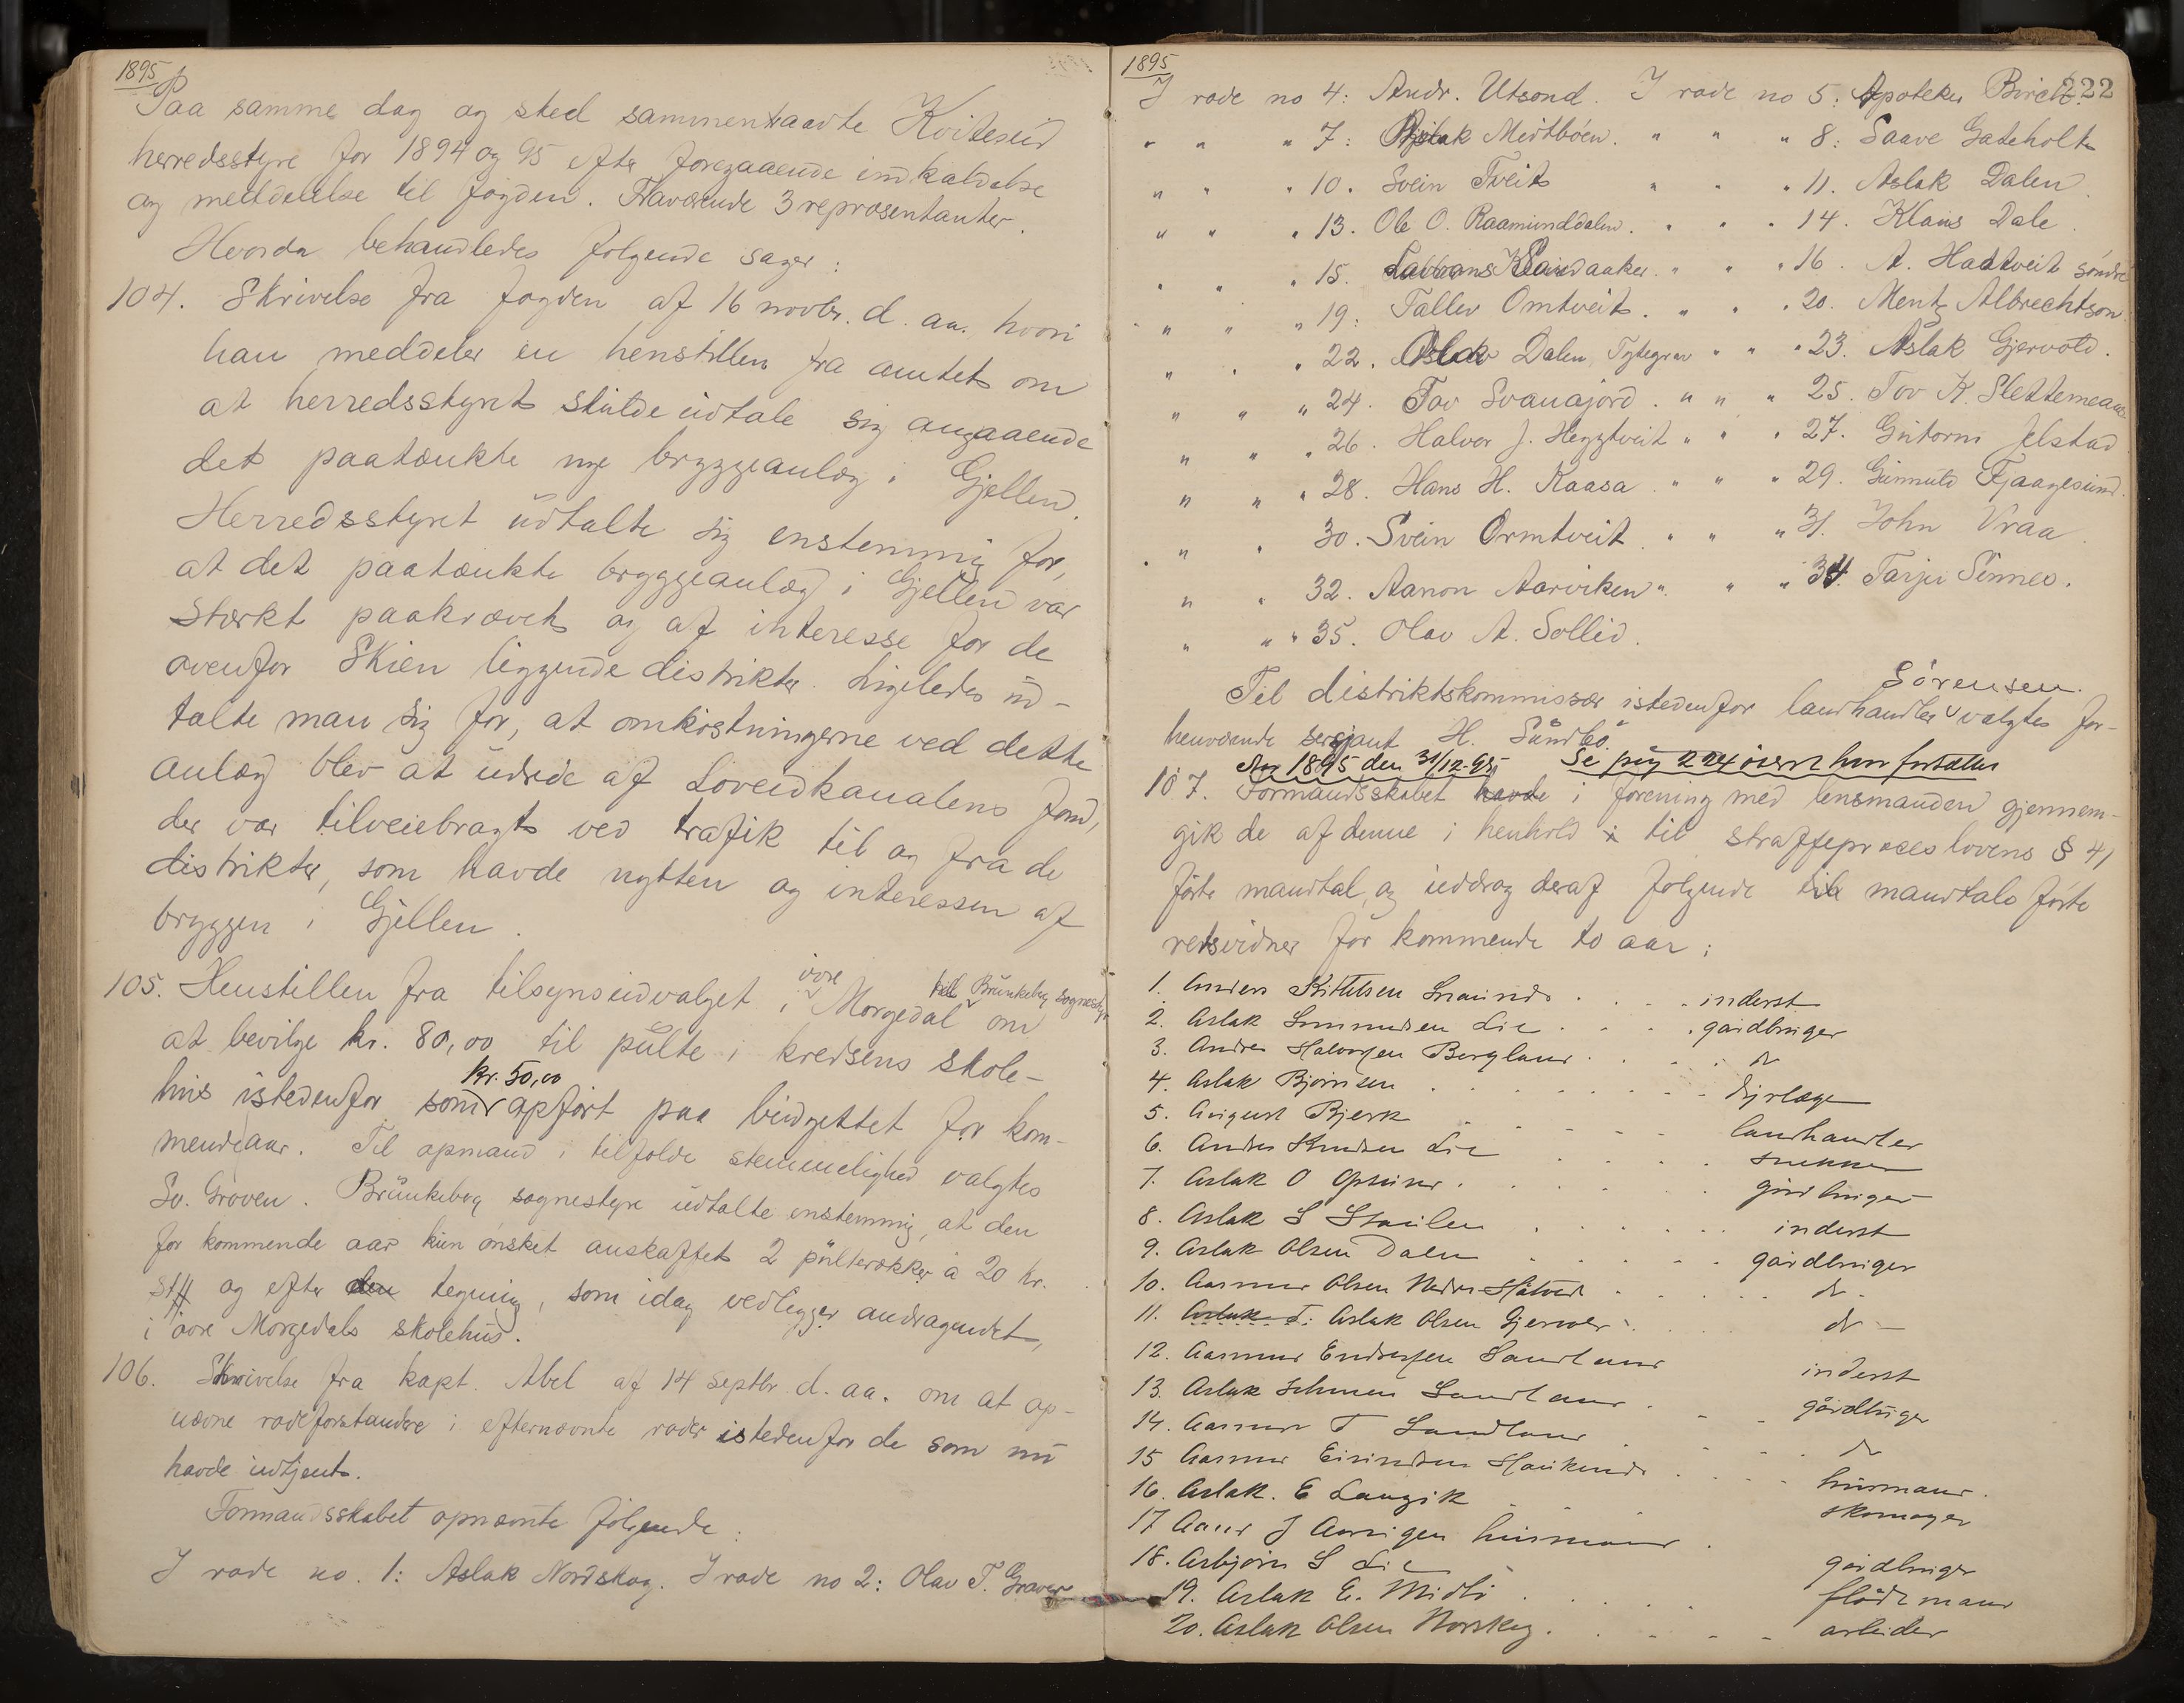 1895
Paa samme dag og sted sammentraadte Kviteseid
herredsstyre for 1894 og 95 efter foregaaende indkaldelse
og meddelelse til fogden. Fraværende 3 repræsentanter.
Hvorda behandledes følgende sager:
104. Skrivelse fra fogden af 16 novbr. d. aa. hvori
han meddeler en henstillen fra amtet om
at herredsstyret skulde udtale sig angaaende
det paatænkte nye bryggeanlæg i Gjellen.
Herredsstyret udtalte sig enstemmig for,
at det paatænkte bryggeanlæg i Gjellen var
stærkt paakrævet og af interesse for de
ovenfor Skien liggende distrikter. Ligeledes ud-
talte man sig for, at omkostningerne ved dette
anlæg blev at udrede af Løveidkanalens fond,
der var tilveiebragt ved trafik til og fra de
distrikter, som havde nytten og interessen af
bryggen i Gjellen.
105. Henstillen fra tilsynsudvalget i øvre Morgedal till Brunkeberg sognestyr om
at bevilge kr. 80,00 til pulte i kredsens skole-
hus istedenfor som kr. 50,00 opført paa budgettet for kom-
mende aar. Til opmand i tilfælde stemmelighed valgtes
Sv. Groven. Brunkeberg sognestyre udtalte enstemmig, at den
for kommende aar kun ønsket anskaffet 2 pulterækker à 20 kr.
st# og efter den tegning, som idag vedlegger andragendet,
i øvre Morgedals skolehus.
106. Skrivelse fra kapt. Abel af 14 septbr. d. aa. om at op-
nævne rodeforstandere i efternævnte roder istedenfor de som nu
havde udtjent.
Formandsskabet opnævnte følgende:
I rode no. 1: Aslak Nordskog. I rode no 2: Olav T. Graver
1895
222
I rode no 4: Andr. Utsond. I rode no 5: Apoteker Birch.
" " " 7: Aslak Midtbøen. " " " 8: Saave Gateholt
" " " 10. Svein Tveit " " " 11. Aslak Dalen
" " " 13. Ole O. Raamunddalen. " " " 14. Klaus Dale.
" " " 15. " " " 16. A. Haatveit søndre
" " " 19. Tallev Omtveit. " " " 20. Mentz Albrechtson.
" " " 22. Dalen, Tytegrav " " " 23. Aslak Gjervold.
" " " 24. Tov Svanajord. " " " 25. Tov K. Slettemeaas
" " " 26. Halvor J. Heggtveit " " " 27. Gutorm Jelstad
" " " 28. Hans H. Kaasa. " " " 29. Gunnuld Fjaagesund.
" " 30. Svein Ormtveit. " " " 31. John Vraa.
" " 32. Aanon Aarviken ". " " 34. Tarjei Sinnes.
" " " 35. Olav A. Sollid.
Til distriktskommissær istedenfor landhandler Sørensen valgtes for-
henværende sersjant H. Sundbø.
Aar 1895 den 31/12-95 Se pag 224 øverst hvor fortsættes
107. Formandsskabet havde i forening med lensmanden gjennem-
gik de af denne i henhold i til straffeproceslovens § 41
førte mandtal, og uddrog deraf følgende til mandtals førte
retsvidner for kommende to aar:
1. Anders Kittilsen . . . inderst
2. Aslak Lie . . . gårdbruger
3. Andres Halvorsen Bergland . . . do
4. Aslak Bjørnsen . . . dyrlæge
5. August Bjerk . . . landhandler
6. Anders Knudsen Lie . . . snekker
7. Aslak O . . . gårdbruger
8. Aslak S Staulen . . . inderst
9. Aslak Olsen Dalen . . . gårdbruger
10. Aasmund Olsen Nedre Håtveit . . . do.
11. Aslak T. Aslak Olsen Gjervold . . do
12. Aasmund Endresen Sandland inderst
13. Aslak Sandland . . gårdbruger
14. Aasmund T Sandland . . . do
15 Aasmund Eivindsen Haukend . . . husmand.
16. Aslak. E Langvik . . skomager
17 husmand .
18. Asbjørn S Lie gårdbruger
19. Aslak E. Midbø . . . flødtmand
20. Aslak Olsen Norskog. . . . arbeider